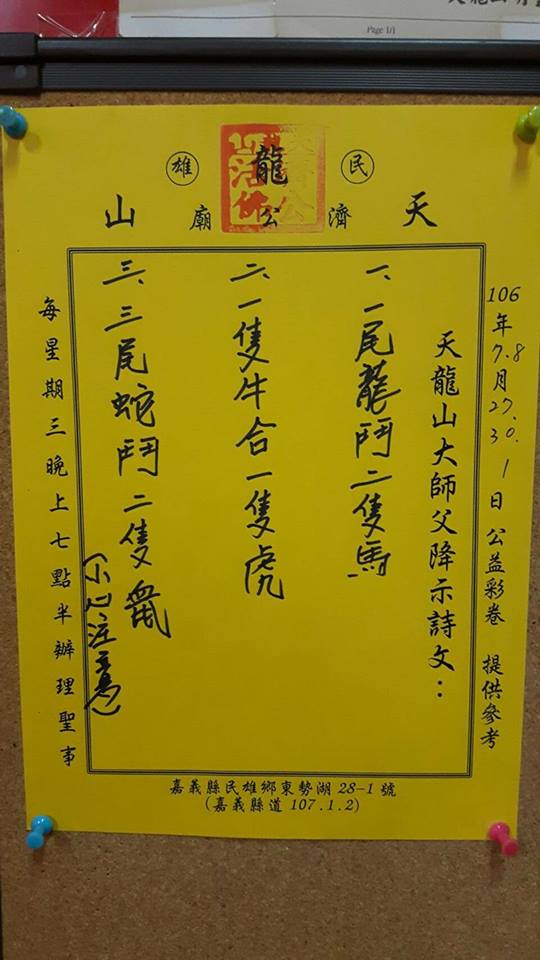 Page 1/1
民 龍 雄
天濟公廟山
106年7.8月27.30.1日 公益彩卷 提供參考
天龍山大師父降示詩文：
一、一尾龍鬥二隻馬
二、一隻牛合一隻虎
三、三尾蛇鬥二隻鼠
(小心注意)
每星期三晚上七點半辦理聖事
嘉義縣民雄鄉東勢湖28-1號
(嘉義縣道107.1.2)